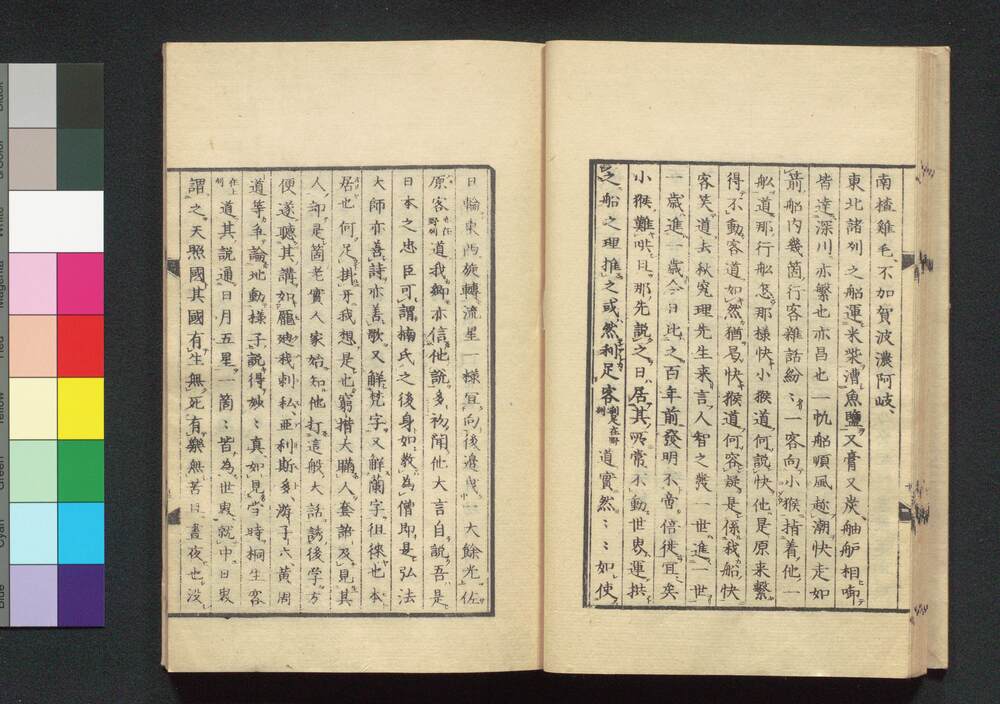 南楂雞毛、不加賀波濃阿岐、
東北諸列之船運米柴漕魚鹽又膏又炭舳艫相啣
皆達深川亦繫也亦昌也一帆船順風趂潮快走如
箭船内幾箇行客雜話紛〻一客向小猴揹着他一
舩道那行舩怎那樣快小猴道何説快他是原来繫
得不動客道如然猶曷快猴道何容疑是係我船快
客笑道去秋究理先生来言人智之發一世進一世
一歳進一歳今日比之百年前發明不啻倍徙宜矣
小猴難哄且那先説之日居其所常不動世界運拱
之船之理推之或然利足客利足在野州道實然〻〻如使
日輪東西旋轉流星一樣宜向後邊曳一大餘光佐
原客也在野州道我鄉亦信他説多初聞他大言自説吾是
日本之忠臣可謂楠氏之後身如教為僧即是弘法
大師亦善詩亦善歌又解梵字又解蘭字徂徠也本
居也何足掛牙我想是也窮措大瞞人套語及見其
人卻是箇老實人家始知他打這般大話誘後学方
便遂聽其講如龎礴我刺私亜利斯多游子六黄周
道等争論地動樣子説得妙〻真如見當時桐生客
在上州道其説通日月五星一箇〻皆為世界就中日界
謂之天照國其國有生無死有樂無苦日晝夜也没